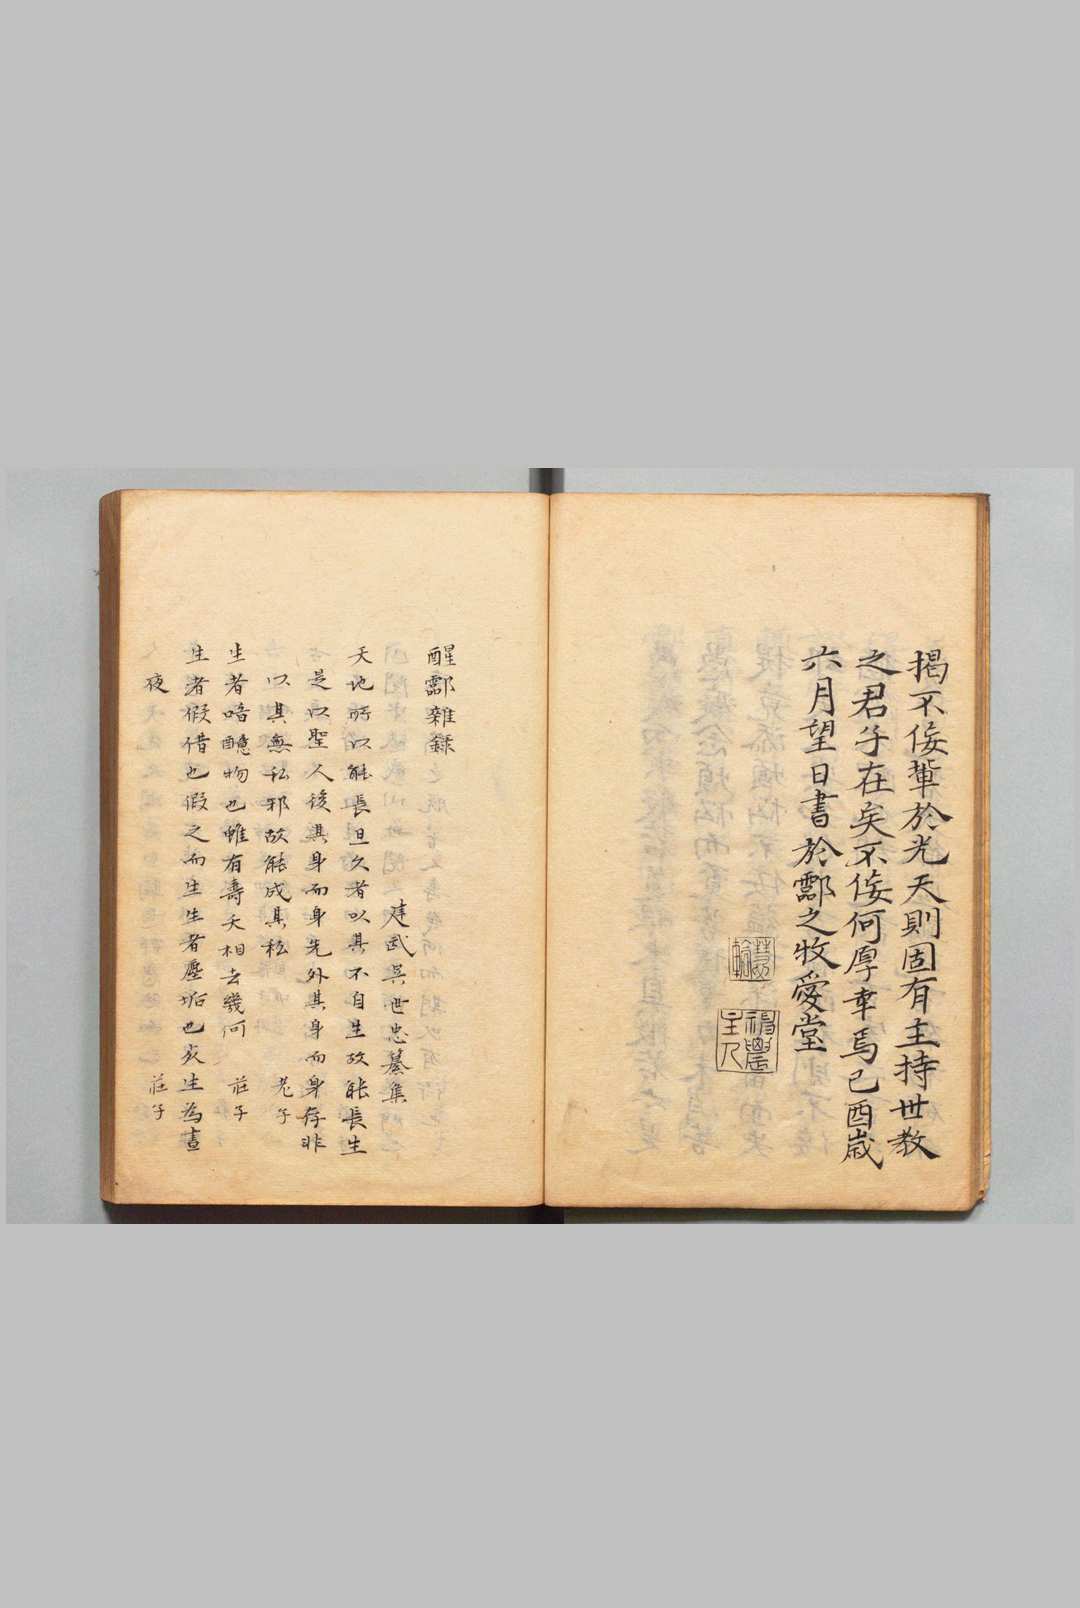 揭不佞輩於光天則固有主持世教
之君子在矣不佞何厚幸焉己酉歲
六月望日書於酃之牧愛堂
主人
醒酃雜錄
建武吳世忠纂集
天地所以能長且久者以其不自生故能長生
是以聖人後其身而身先外其身而身存非
以其無私邪故能成其私　老子
生者喑醷物也雖有壽夭相去幾何　莊子
生者假借也假之而生生者塵垢也死生為晝
夜　莊子